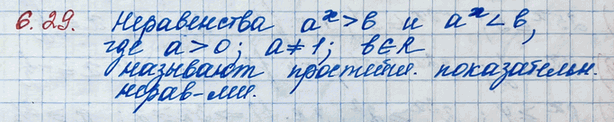 6.29. Неравенства aˣ>b и aˣ<b,
где a>0; a≠1; b∈R
называют простейш. показательн.
нерав-ми.